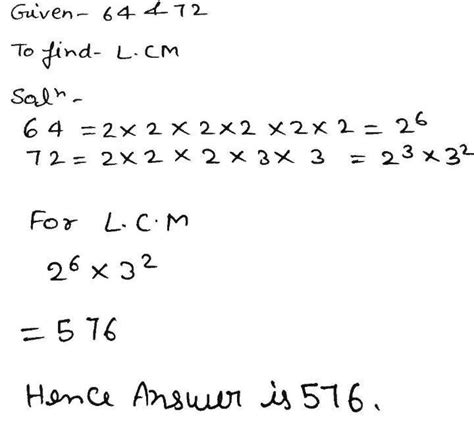 Given- 64 & 72
To find- L.CM
Solⁿ-
64 = 2 × 2 × 2 × 2 × 2 × 2 = 2⁶
72 = 2 × 2 × 2 × 3 × 3 = 2³ × 3²
For L.C.M
2⁶ × 3²
= 576
Hence Answer is 576.